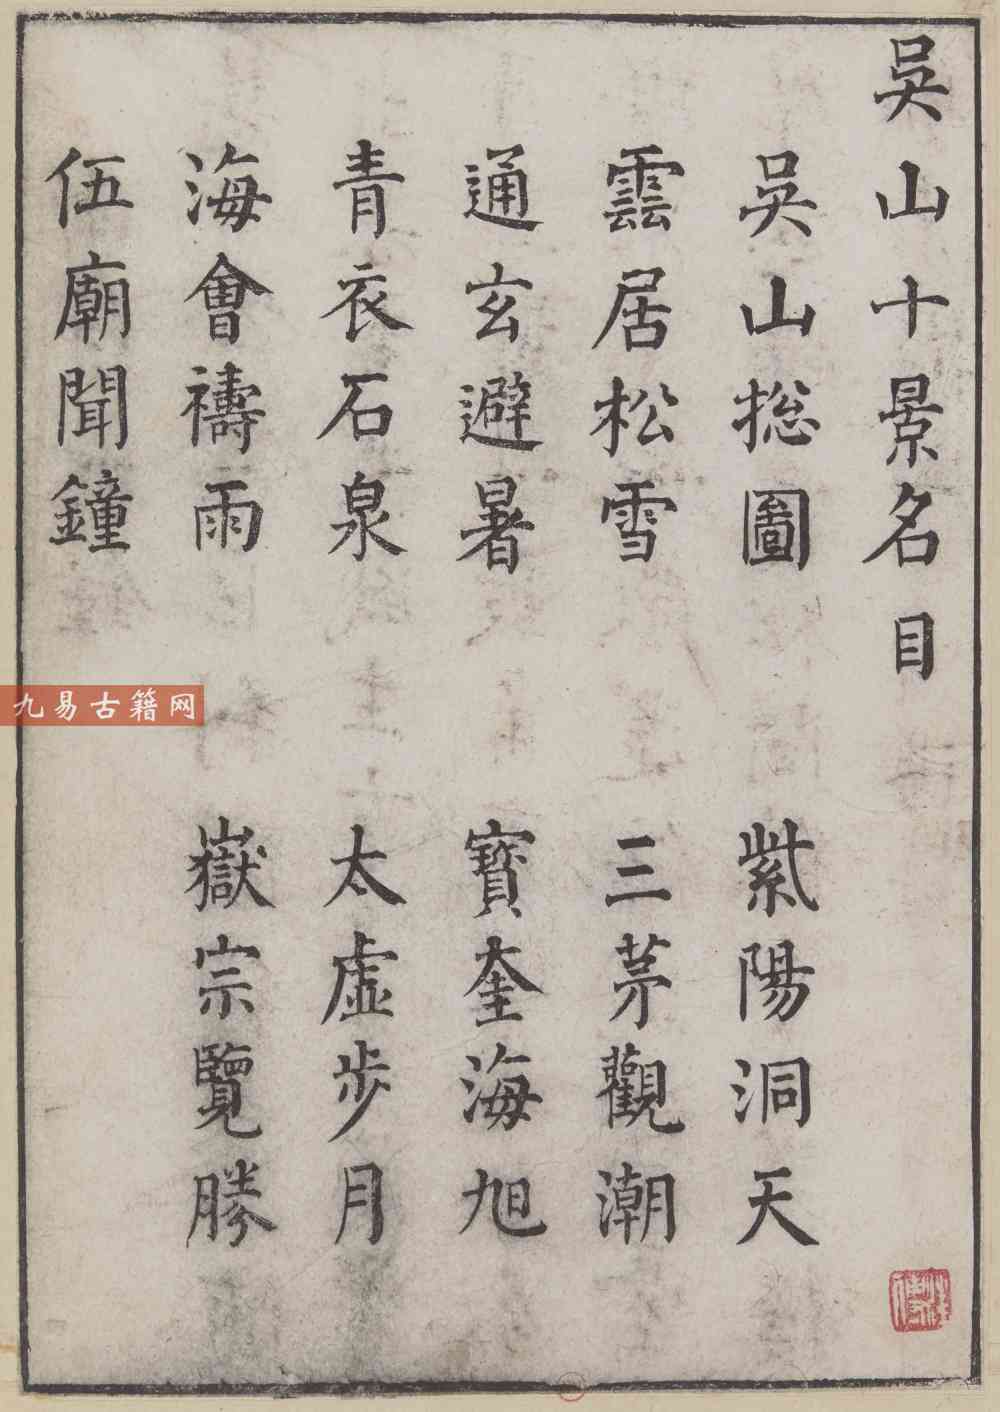 吳山十景名目
吳山揔圖
紫陽洞天
雲居松雪
三茅觀潮
通玄避暑
寶奎海旭
青衣石泉
太虛步月
海會禱雨
嶽宗覽勝
伍廟聞鐘
九易古籍网